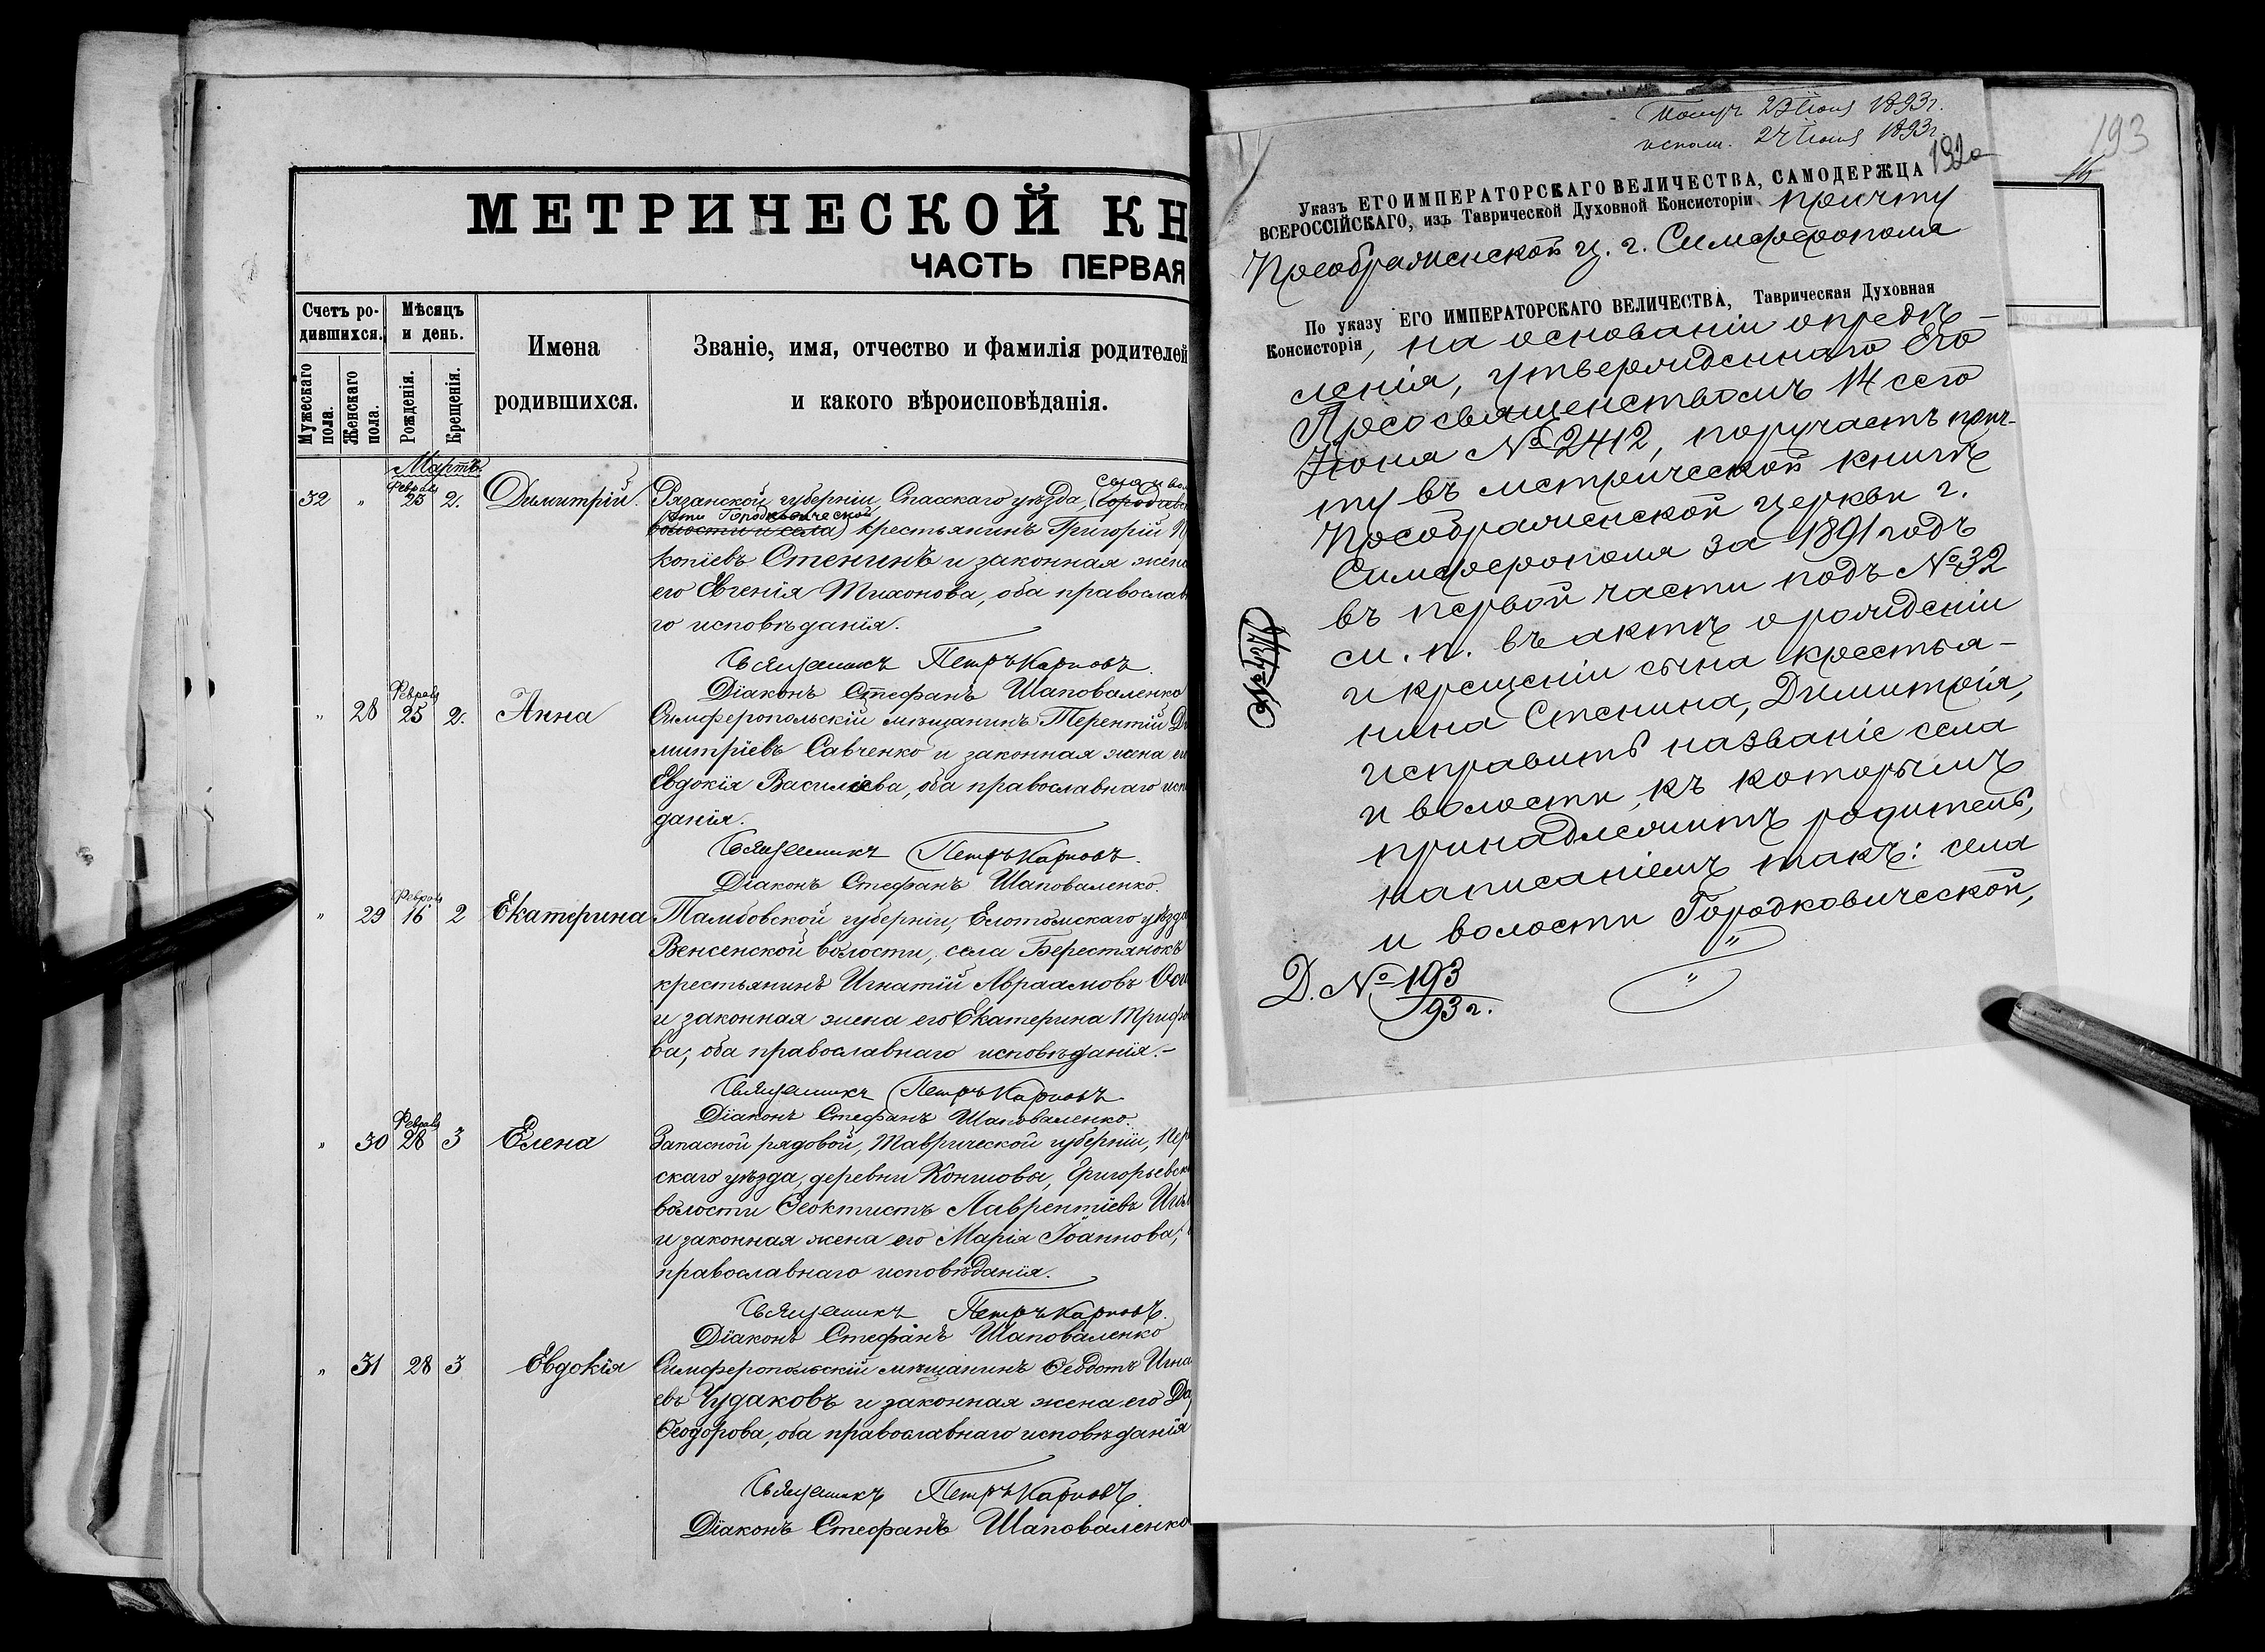 МЕТРИЧЕСКОЙ КН
ЧАСТЬ ПЕРВАЯ
Счетъ ро-
дившихся.
Мѣсяцъ
и день.
Мужескаго
пола.
Женскаго
пола.
Рожденія.
Крещенія.
Имена
родившихся.
Званіе, имя, отчество и фамилія родителей
и какого вѣроисповѣданія.
Мартъ.
Февраля
32 " 25 2. Димитрій. Рязанской губерніи Спасскаго уѣзда, села и вол
ости Городковической
волости и села) крестьянинъ Григорій
копіевъ Стенинъ и законная жена
его Евгенія Тихонова, оба православ
го исповѣданія.
Священникъ Петръ Карповъ.
Діаконъ Стефанъ Шаповаленко
Февраля
" 28 25 2. Анна Симферопольскій мѣщанинъ Терентій Ди
митріевъ Савченко и законная жена ег
Евдокія Василіева, оба православнаго исп
данія.
Священникъ Петръ Карповъ.
Діаконъ Стефанъ Шаповаленко.
Февраля
" 29 16 2 Екатерина Тамбовской губерніи, Елатомскаго уѣзда
Венсенской волости, села Берестянокъ
крестьянинъ Игнатій Авраамовъ
и законная жена его Екатерина Трифо
ва; оба православнаго исповѣданія.-
Священникъ Петръ Карповъ
Діаконъ Стефанъ Шаповаленко.
Февраля
" 30 28 3 Елена Запасной рядовой, Таврической губерніи, Пер
скаго уѣзда, деревни Коншовы, Григорьевск
волости Феоктистъ Лаврентіевъ
и законная жена его Марія Іоаннова;
православнаго исповѣданія.
Священникъ Петръ Карповъ.
Діаконъ Стефанъ Шаповаленко
" 31 28 3 Евдокія Симферопольскій мѣщанинъ Феодотъ Игна
евъ Чудаковъ и законная жена его Да
Феодорова, оба православнаго исповѣданія
Священникъ Петръ Карповъ.
Діаконъ Стефанъ Шаповаленко
193
Получ 23 Іюня 1893 г.
исполн. 24 Іюня 1893 г.
192а
Указъ ЕГО ИМПЕРАТОРСКАГО ВЕЛИЧЕСТВА, САМОДЕРЖЦА
ВСЕРОССІЙСКАГО, изъ Таврической Духовной Консисторіи причту
Преображенской ц. г. Симферополя
По указу ЕГО ИМПЕРАТОРСКАГО ВЕЛИЧЕСТВА, Таврическая Духовная
Консисторія, на основаніи опредѣ-
ленія, утвержденнаго Его
Преосвященствомъ 14 сего
Іюня № 2412, поручаетъ прич-
ту въ метрической книгѣ
Преображенской церкви г.
Симферополя за 1891 годъ
въ первой части подъ № 32
м. п. въ актѣ о рожденіи
и крещеніи сына крестья-
нина Стенина, Димитрія,
исправить названіе села
и волости, къ которымъ
принадлежитъ родитель,
написаніемъ такъ: села
и волости Городковической,
Д. № 193
93 г.